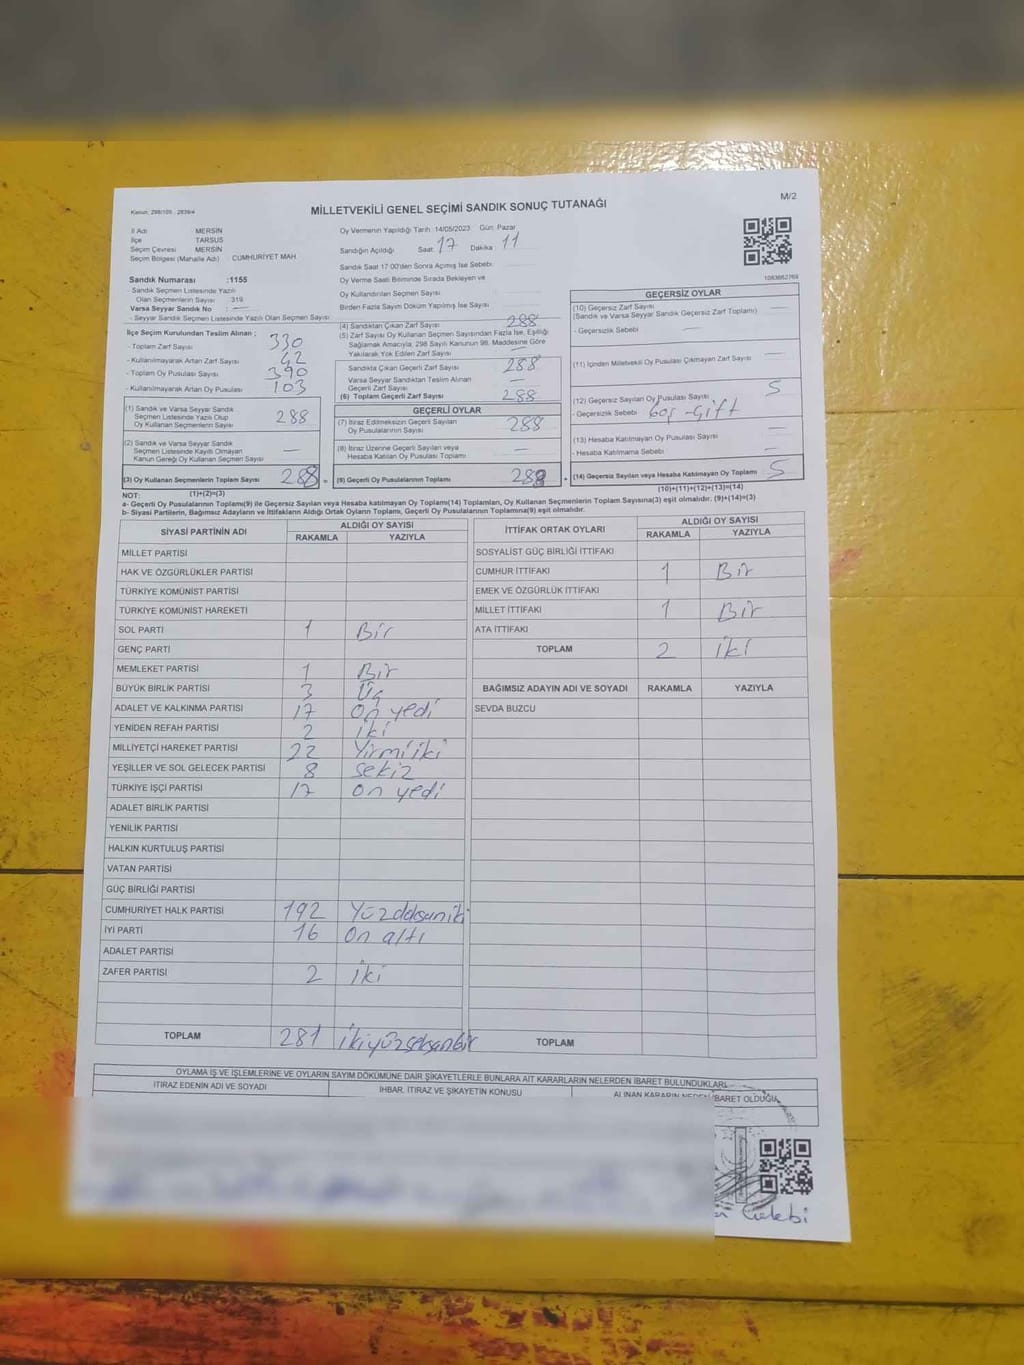 M/2
Kanun: 298/105 , 2839/4
MİLLETVEKİLİ GENEL SEÇİMİ SANDIK SONUÇ TUTANAĞI
İl Adı MERSİN
İlçe TARSUS
Seçim Çevresi MERSİN
Seçim Bölgesi (Mahalle Adı) CUMHURİYET MAH
Sandık Numarası :1155
- Sandık Seçmen Listesinde Yazılı
Olan Seçmenlerin Sayısı 319
Varsa Seyyar Sandık No :
- Seyyar Sandık Seçmen Listesinde Yazılı Olan Seçmen Sayısı
Oy Vermenin Yapıldığı Tarih :14/05/2023 Gün: Pazar
Sandığın Açıldığı Saat: 17 Dakika 11
Sandık Saat 17:00'den Sonra Açmış İse Sebebi
Oy Verme Saati Bitiminde Sırada Bekleyen ve
Oy Kullandırılan Seçmen Sayısı
Birden Fazla Sayım Döküm Yapılmış İse Sayısı
1083662769
İlçe Seçim Kurulundan Teslim Alınan ;
- Toplam Zarf Sayısı 330
- Kullanılmayarak Artan Zarf Sayısı 42
- Toplam Oy Pusulası Sayısı 390
- Kullanılmayarak Artan Oy Pusulası 103
(1) Sandık ve Varsa Seyyar Sandık
Seçmen Listesinde Yazılı Olup
Oy Kullanan Seçmenlerin Sayısı 288
(2) Sandık ve Varsa Seyyar Sandık
Seçmen Listesinde Kayıtlı Olmayan
Kanun Gereği Oy Kullanan Seçmen Sayısı —
(3) Oy Kullanan Seçmenlerin Toplam Sayısı 288 =
(1)+(2)=(3)
(4) Sandıktan Çıkan Zarf Sayısı 288
(5) Zarf Sayısı Oy Kullanan Seçmen Sayısından Fazla İse, Eşitliği
Sağlamak Amacıyla, 298 Sayılı Kanunun 98. Maddesine Göre
Yakılarak Yok Edilen Zarf Sayısı —
Sandıkta Çıkan Geçerli Zarf Sayısı 288
Varsa Seyyar Sandıktan Teslim Alınan
Geçerli Zarf Sayısı —
(6) Toplam Geçerli Zarf Sayısı 288
GEÇERLİ OYLAR
(7) İtiraz Edilmeksizin Geçerli Sayılan
Oy Pusulalarının Sayısı 288
(8) İtiraz Üzerine Geçerli Sayılan veya
Hesaba Katılan Oy Pusulası Toplamı —
(9) Geçerli Oy Pusulalarının Toplamı +
GEÇERSİZ OYLAR
(10) Geçersiz Zarf Sayısı
(Sandık ve Varsa Seyyar Sandık Geçersiz Zarf Toplamı) —
- Geçersizlik Sebebi —
(11) İçinden Milletvekili Oy Pusulası Çıkmayan Zarf Sayısı —
(12) Geçersiz Sayılan Oy Pusulası Sayısı 5
- Geçersizlik Sebebi boş-Çift
(13) Hesaba Katılmayan Oy Pusulası Sayısı —
- Hesaba Katılmama Sebebi —
(14) Geçersiz Sayılan veya Hesaba Katılmayan Oy Toplamı 5
(10)+(11)+(12)+(13)=(14)
NOT:
a- Geçerli Oy Pusulalarının Toplamı(9) ile Geçersiz Sayılan veya Hesaba katılmayan Oy Toplamı(14) Toplamları, Oy Kullanan Seçmenlerin Toplam Sayısına(3) eşit olmalıdır. (9)+(14)=(3)
b- Siyasi Partilerin, Bağımsız Adayların ve İttifakların Aldığı Ortak Oyların Toplamı, Geçerli Oy Pusulalarının Toplamına(9) eşit olmalıdır.
SİYASİ PARTİNİN ADI ALDIĞI OY SAYISI
RAKAMLA YAZIYLA
MİLLET PARTİSİ
HAK VE ÖZGÜRLÜKLER PARTİSİ
TÜRKİYE KOMÜNİST PARTİSİ
TÜRKİYE KOMÜNİST HAREKETİ
SOL PARTİ 1 Bir
GENÇ PARTİ
MEMLEKET PARTİSİ 1 Bir
BÜYÜK BİRLİK PARTİSİ 3 Üç
ADALET VE KALKINMA PARTİSİ 17 On yedi
YENİDEN REFAH PARTİSİ 2 iki
MİLLİYETÇİ HAREKET PARTİSİ 22 Yirmi iki
YEŞİLLER VE SOL GELECEK PARTİSİ 8 Sekiz
TÜRKİYE İŞÇİ PARTİSİ 17 On yedi
ADALET BİRLİK PARTİSİ
YENİLİK PARTİSİ
HALKIN KURTULUŞ PARTİSİ
VATAN PARTİSİ
GÜÇ BİRLİĞİ PARTİSİ
CUMHURİYET HALK PARTİSİ 192
İYİ PARTİ 16 On altı
ADALET PARTİSİ
ZAFER PARTİSİ 2 iki
TOPLAM 281 İkiyüzseksenbir
İTTİFAK ORTAK OYLARI ALDIĞI OY SAYISI
RAKAMLA YAZIYLA
SOSYALİST GÜÇ BİRLİĞİ İTTİFAKI
CUMHUR İTTİFAKI 1 Bir
EMEK VE ÖZGÜRLÜK İTTİFAKI
MİLLET İTTİFAKI 1 Bir
ATA İTTİFAKI
TOPLAM 2 iki
BAĞIMSIZ ADAYIN ADI VE SOYADI RAKAMLA YAZIYLA
SEVDA BUZCU
TOPLAM
OYLAMA İŞ VE İŞLEMLERİNE VE OYLARIN SAYIM DÖKÜMÜNE DAİR ŞİKAYETLERLE BUNLARA AİT KARARLARIN NELERDEN İBARET BULUNDUKLARI
İTİRAZ EDENİN ADI VE SOYADI İHBAR, İTİRAZ VE ŞİKAYETİN KONUSU ALINAN KARARIN NEDEN İBARET OLDUĞU
Çelebi